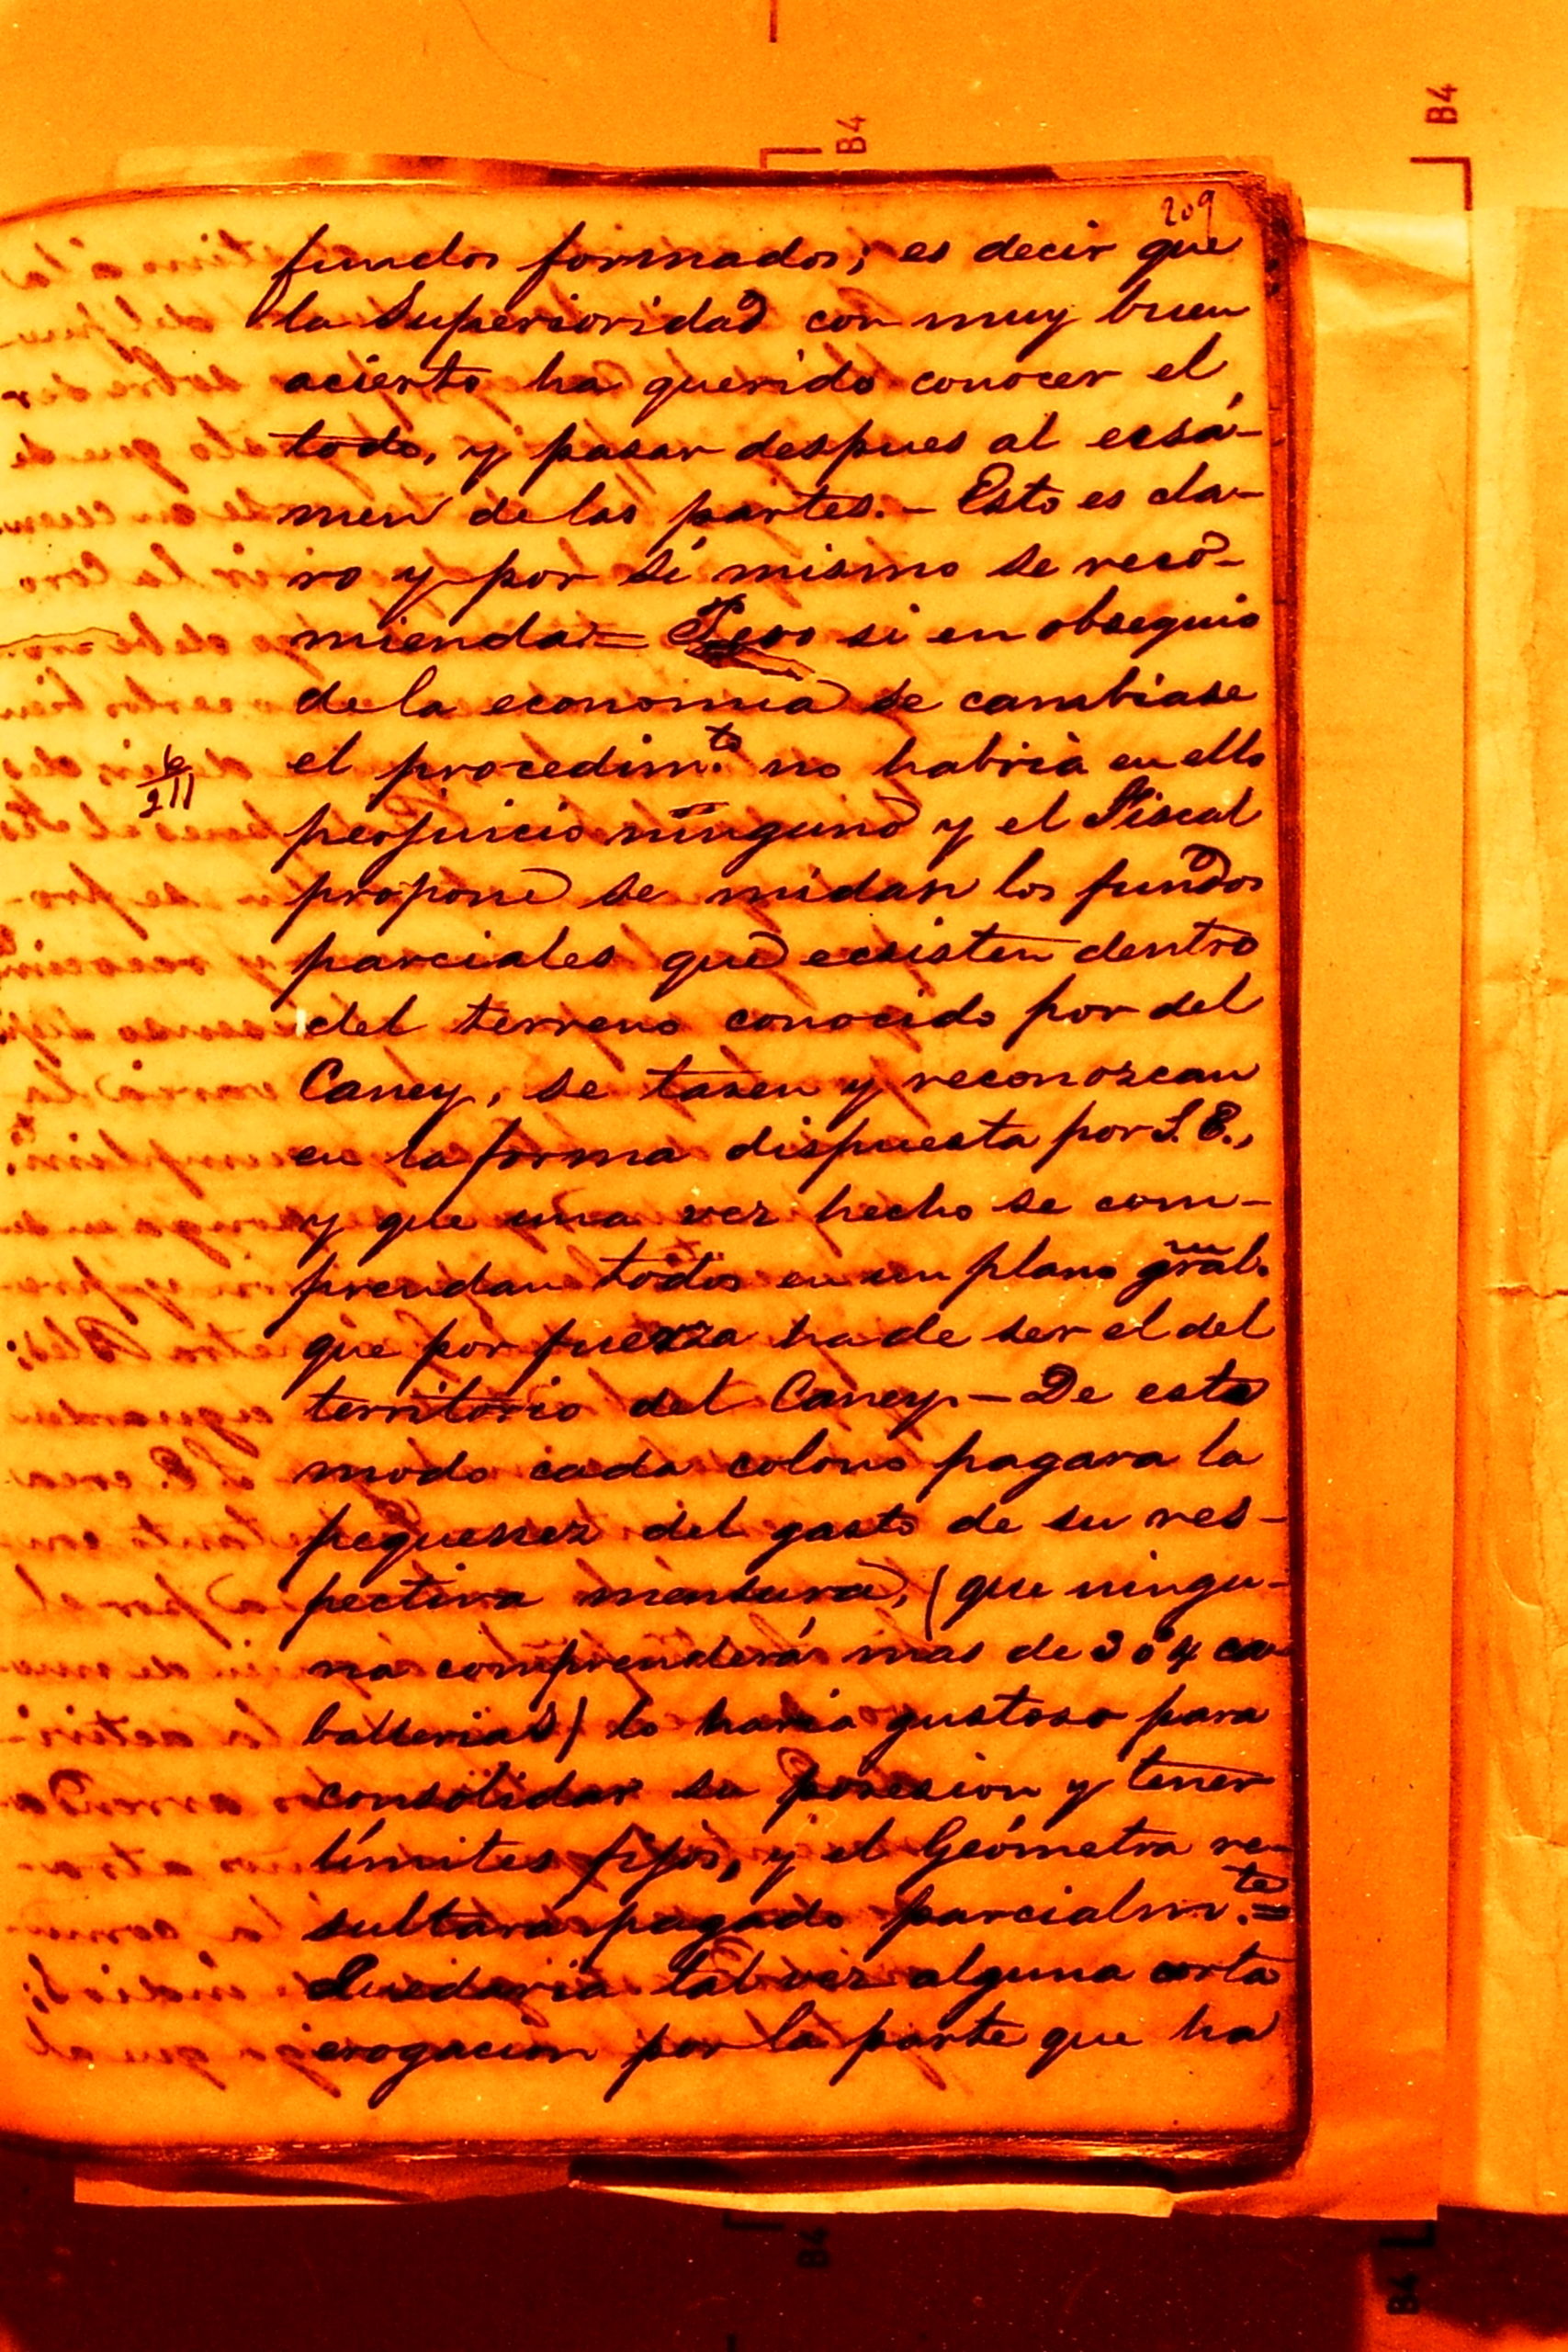 B4
B4
209
fundos formados; es decir que
la Superioridad con muy buen
acierto ha querido conocer el
todo, y pasar despues al ecsá-
men de las partes. - Esto es cla-
ro y por sí mismo se reco-
mienda = Pero si en obsequio
de la economia se cambiase
el procedim.to no habria en ello
perjuicio ninguno y el Fiscal
propone se midan los fundos
parciales que ecsisten dentro
del terreno conocido por del
Caney, se tasen y reconozcan
en la forma dispuesta por S. E.,
y que una vez hecho se com-
prendan todos en un plano gral.
que por fuerza ha de ser el del
territorio del Caney. - De este
modo cada colono pagara la
pequeñez del gasto de su res-
pectiva mensura, (que ningu-
na comprenderá mas de 3 ó 4 ca-
ballerias) lo haria gustoso para
consolidar su posesion y tener
límites fijos, y el Geómetra re-
sultara pagado parcialm.te =
Quedaria tal vez alguna corta
erogacion por la parte que ha
6
211
B4
B4